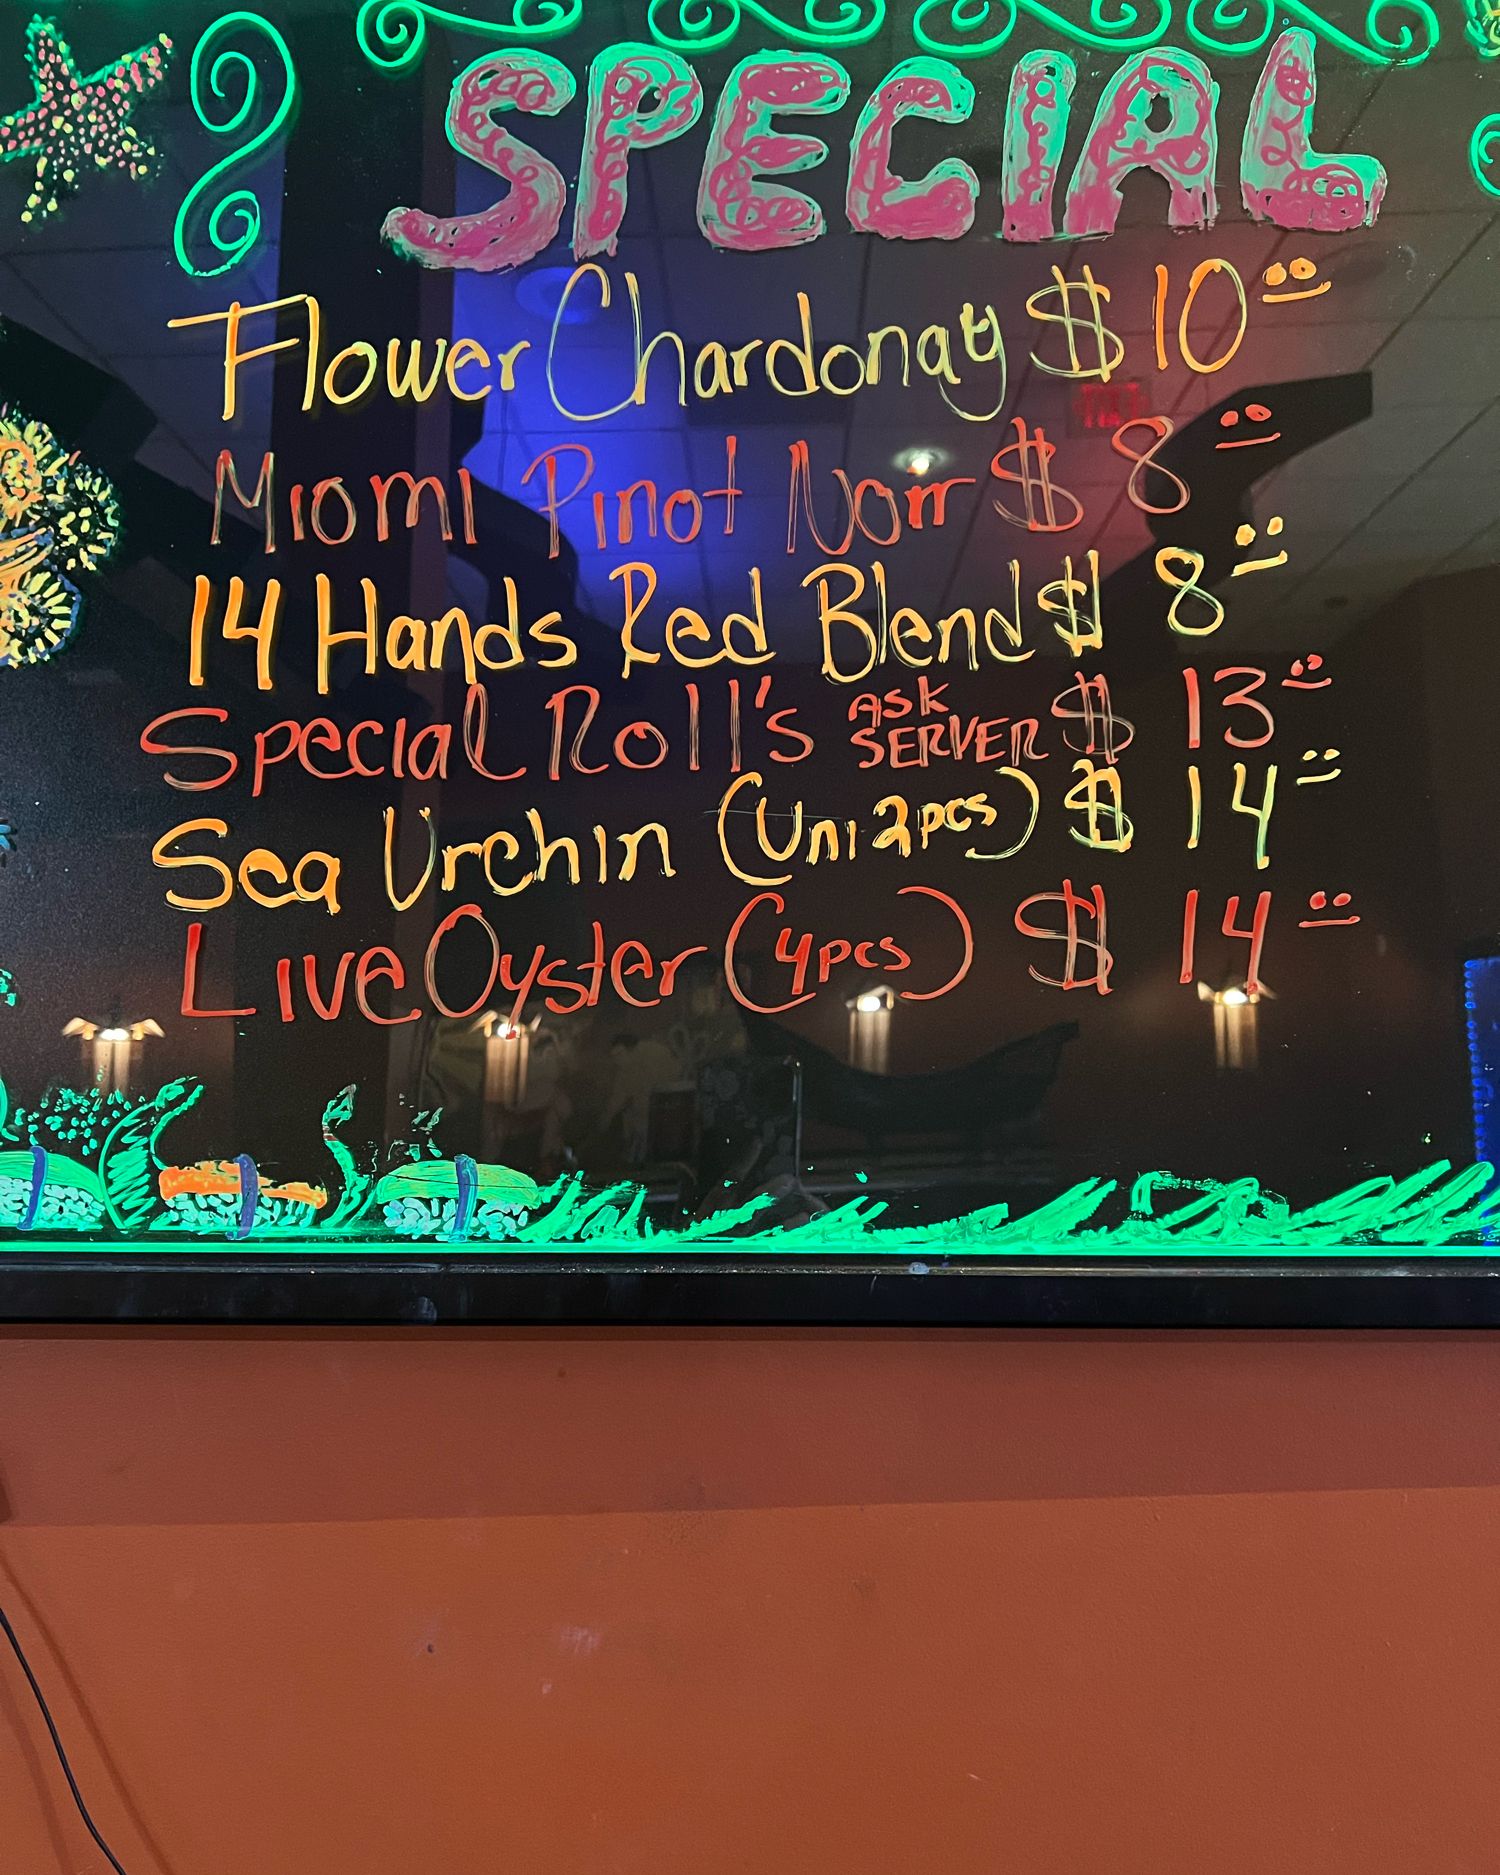 SPECIAL
Flower Chardonay $10.00
Miomi Pinot Noir $8.00
14 Hands Red Blend $8.00
Special Roll's ASK SERVER $13.00
Sea Urchin (Uni 2pcs) $14.00
Live Oyster (4pcs) $14.00